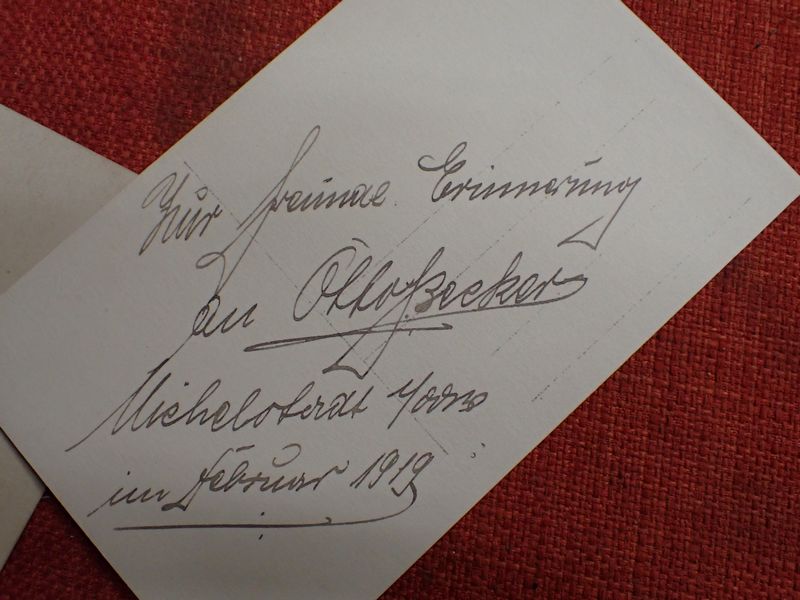 Zur freundl. Erinnerung
an Otto Becker
Michelstadt i/Odw
im Februar 1919